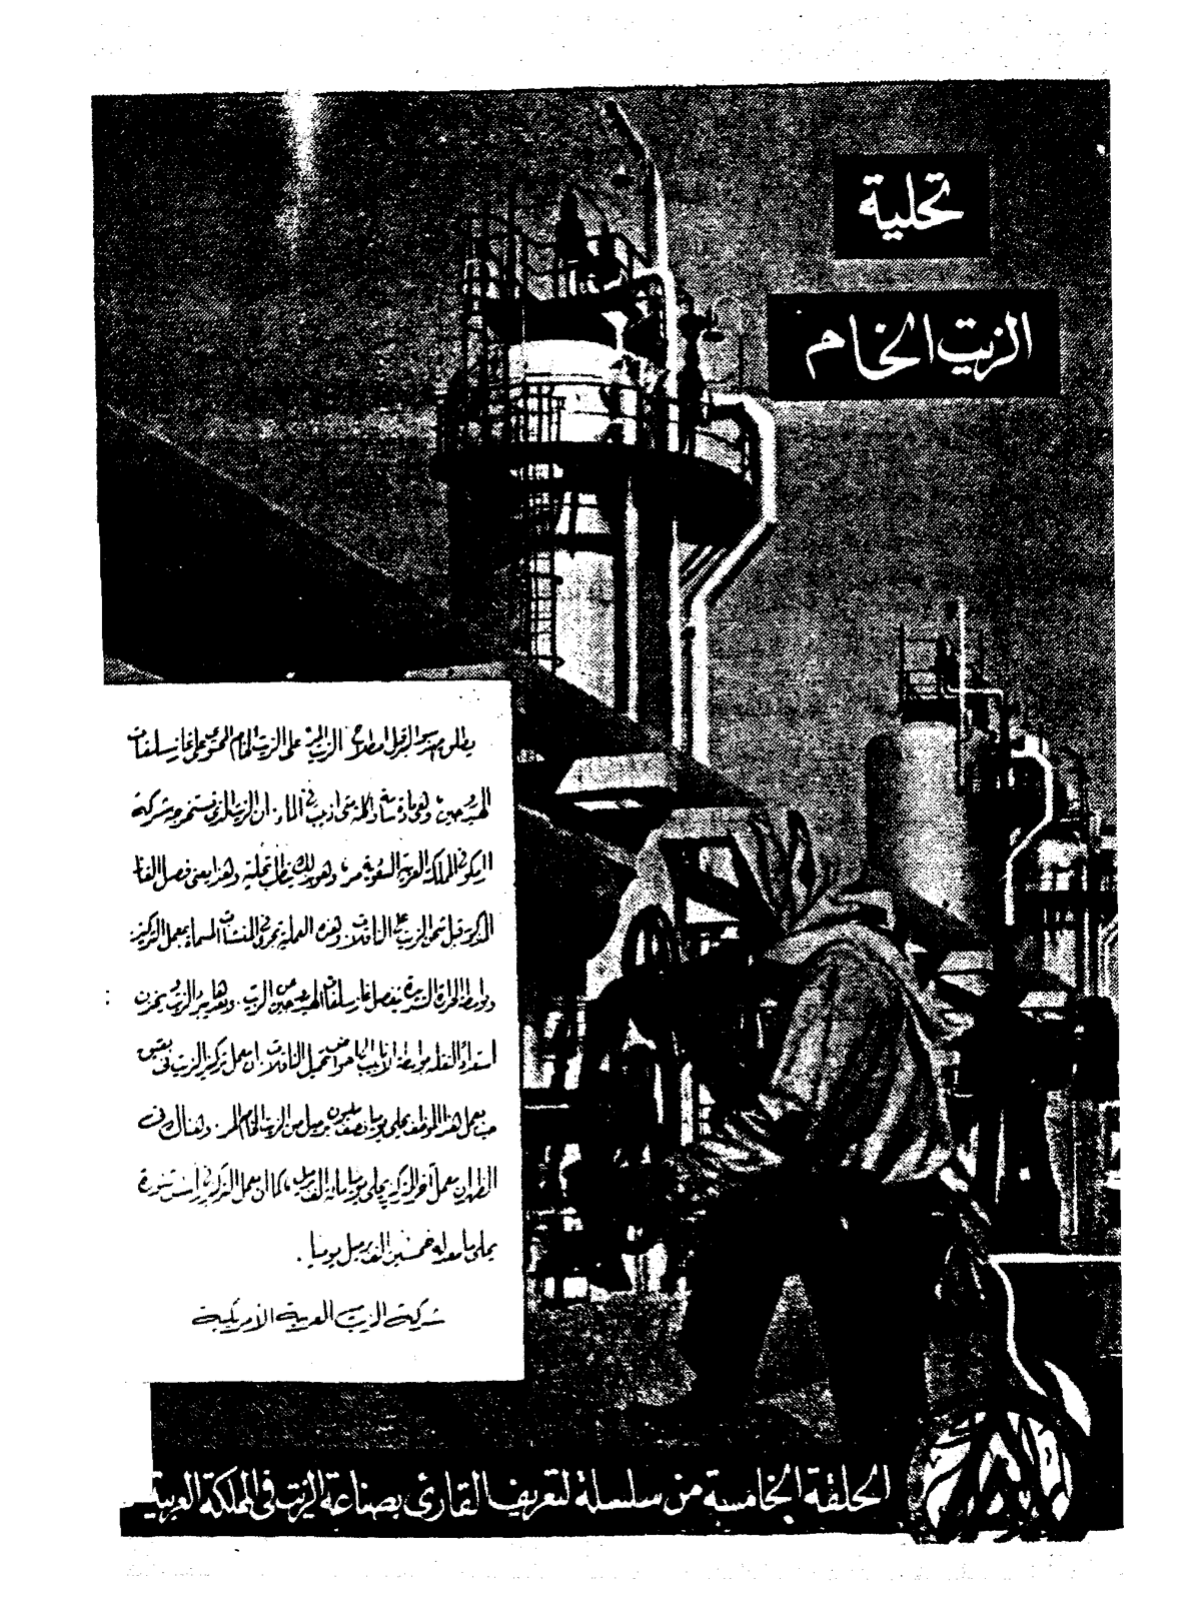 تحلية
الزيت الخام
يطلق مهندسو البترول اصطلاح الزيت المر على الزيت الخام المحتوي على غاز سلفات
الهيدروجين، وهي مادة سامة أكالة متى اذيبت في الماء. ان الزيت الذي تستخرجه شركة
ارامكو في المملكة العربية السعودية مر، وهو بذلك يتطلب تحلية وهذا يعني فصل الغاز
المذكور قبل شحن الزيت على الناقلات. وهذه العملية تجري في المنشآت المسماة بمعمل التركيز.
وبواسطة الحرارة الشديدة يفصل غاز سلفات الهيدروجين من الزيت. وبعدها يبرد الزيت ويخزن
استعدادا لنقله بواسطة الانابيب الى تحميل الناقلات. ان معمل تركيز الزيت في بقيق
حيث يعمل هذا الموظف يحلي يوميا نصف مليون برميل من الزيت الخام المر. وهناك في
الظهران معمل آخر للتركيز يحلي يوميا مائة الف برميل، كما ان معمل التركيز في رأس تنورة
يحلي ما معدله خمسين الف برميل يوميا.
شركة الزيت العربية الأمريكية
الحلقة الخامسة من سلسلة لتعريف القارئ بصناعة الزيت في المملكة العربية